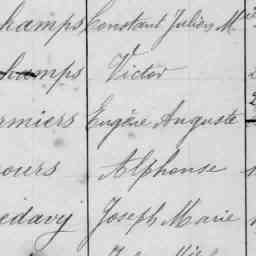 hamps Constant Julien M
hamps Victor
rmiers Eugène Auguste
ours Alphonse
edavy Joseph Marie